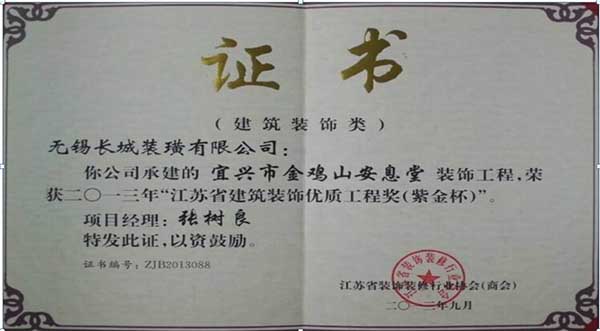 证 书
(建筑装饰类)
无锡长城装璜有限公司:
你公司承建的 宜兴市金鸡山安息堂 装饰工程,荣
获二〇一三年“江苏省建筑装饰优质工程奖(紫金杯)”。
项目经理:张树良
特发此证,以资鼓励。
证书编号:ZJB2013088
江苏省装饰装修行业协会(商会)
二〇一三年九月